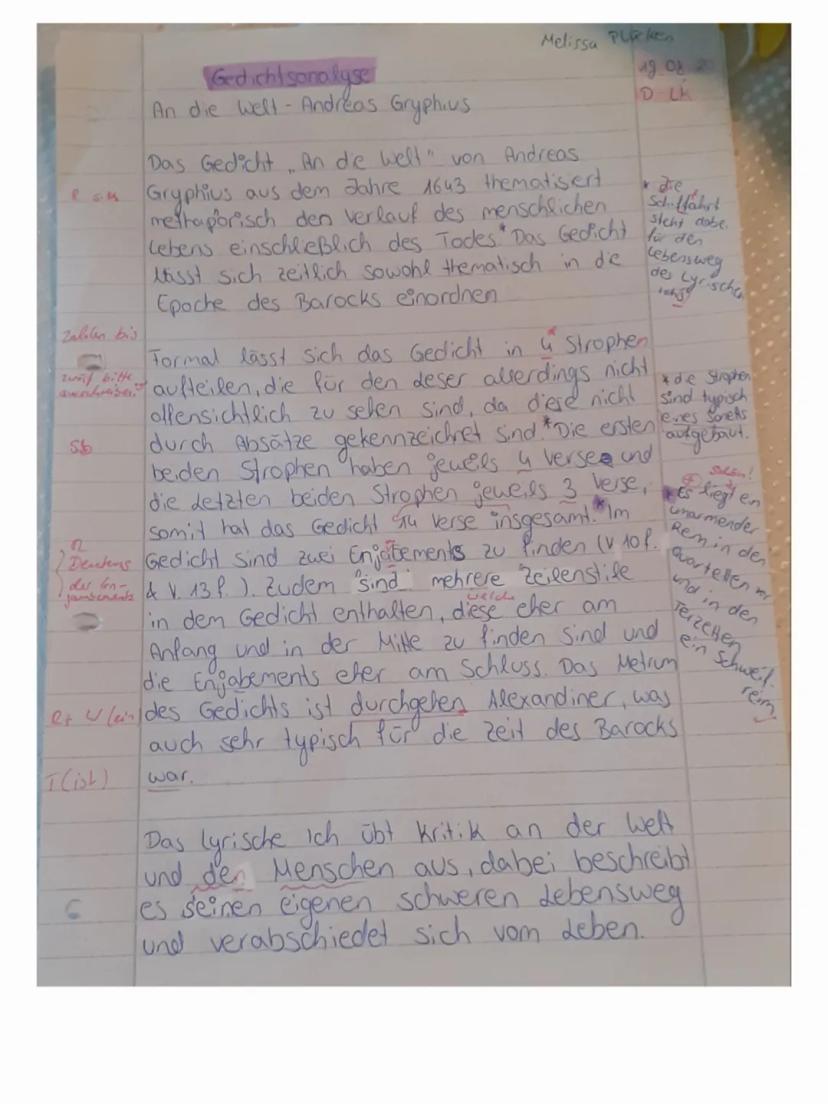 Melissa
19 08
D LK
Gedichtsanalyse
An die Welt - Andreas Gryphius
Das Gedicht „An die Welt" von Andreas
Gryphius aus dem Jahre 1643 thematisiert
methaporisch den Verlauf des menschlichen
Lebens einschließlich des Todes.* Das Gedicht
lässt sich zeitlich sowohl thematisch in die
Epoche des Barocks einordnen
* die
Schifffahrt
steht dabei
für den
Lebensweg
des Lyrischen
Ichs
Zahlen bis
zwölf bitte
ausschreiben
Formal lässt sich das Gedicht in 4 Strophen
aufteilen, die für den Leser allerdings nicht
offensichtlich zu sehen sind, da diese nicht
durch Absätze gekennzeichnet sind.* Die ersten
beiden Strophen haben jeweils 4 Verse und
die letzten beiden Strophen jeweils 3 Verse,
somit hat das Gedicht 14 Verse insgesamt.* Im
Gedicht sind zwei Enjabements zu finden (V 10f.
& V. 13f.). Zudem sind mehrere Zeilenstile
welche
in dem Gedicht enthalten, diese eher am
Anfang und in der Mitte zu finden sind und
die Enjabements eher am Schluss. Das Metrum
des Gedichts ist durchgehen Alexandiner, was
auch sehr typisch für die Zeit des Barocks
war.
* die Strophen
sind typisch
eines Sonetts
aufgebaut.
* Es liegt ein
umarmender
Reim in den
Quartetten
und in den
Terzetten
ein Schweif-
reim
Sb
Deutens
des En-
jambements
R+
T (ist)
Das lyrische Ich übt Kritik an der Welt
und den Menschen aus, dabei beschreibt
es seinen eigenen schweren Lebensweg
und verabschiedet sich vom Leben.